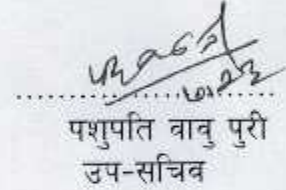 पशुपति वावु पुरी
उप-सचिव